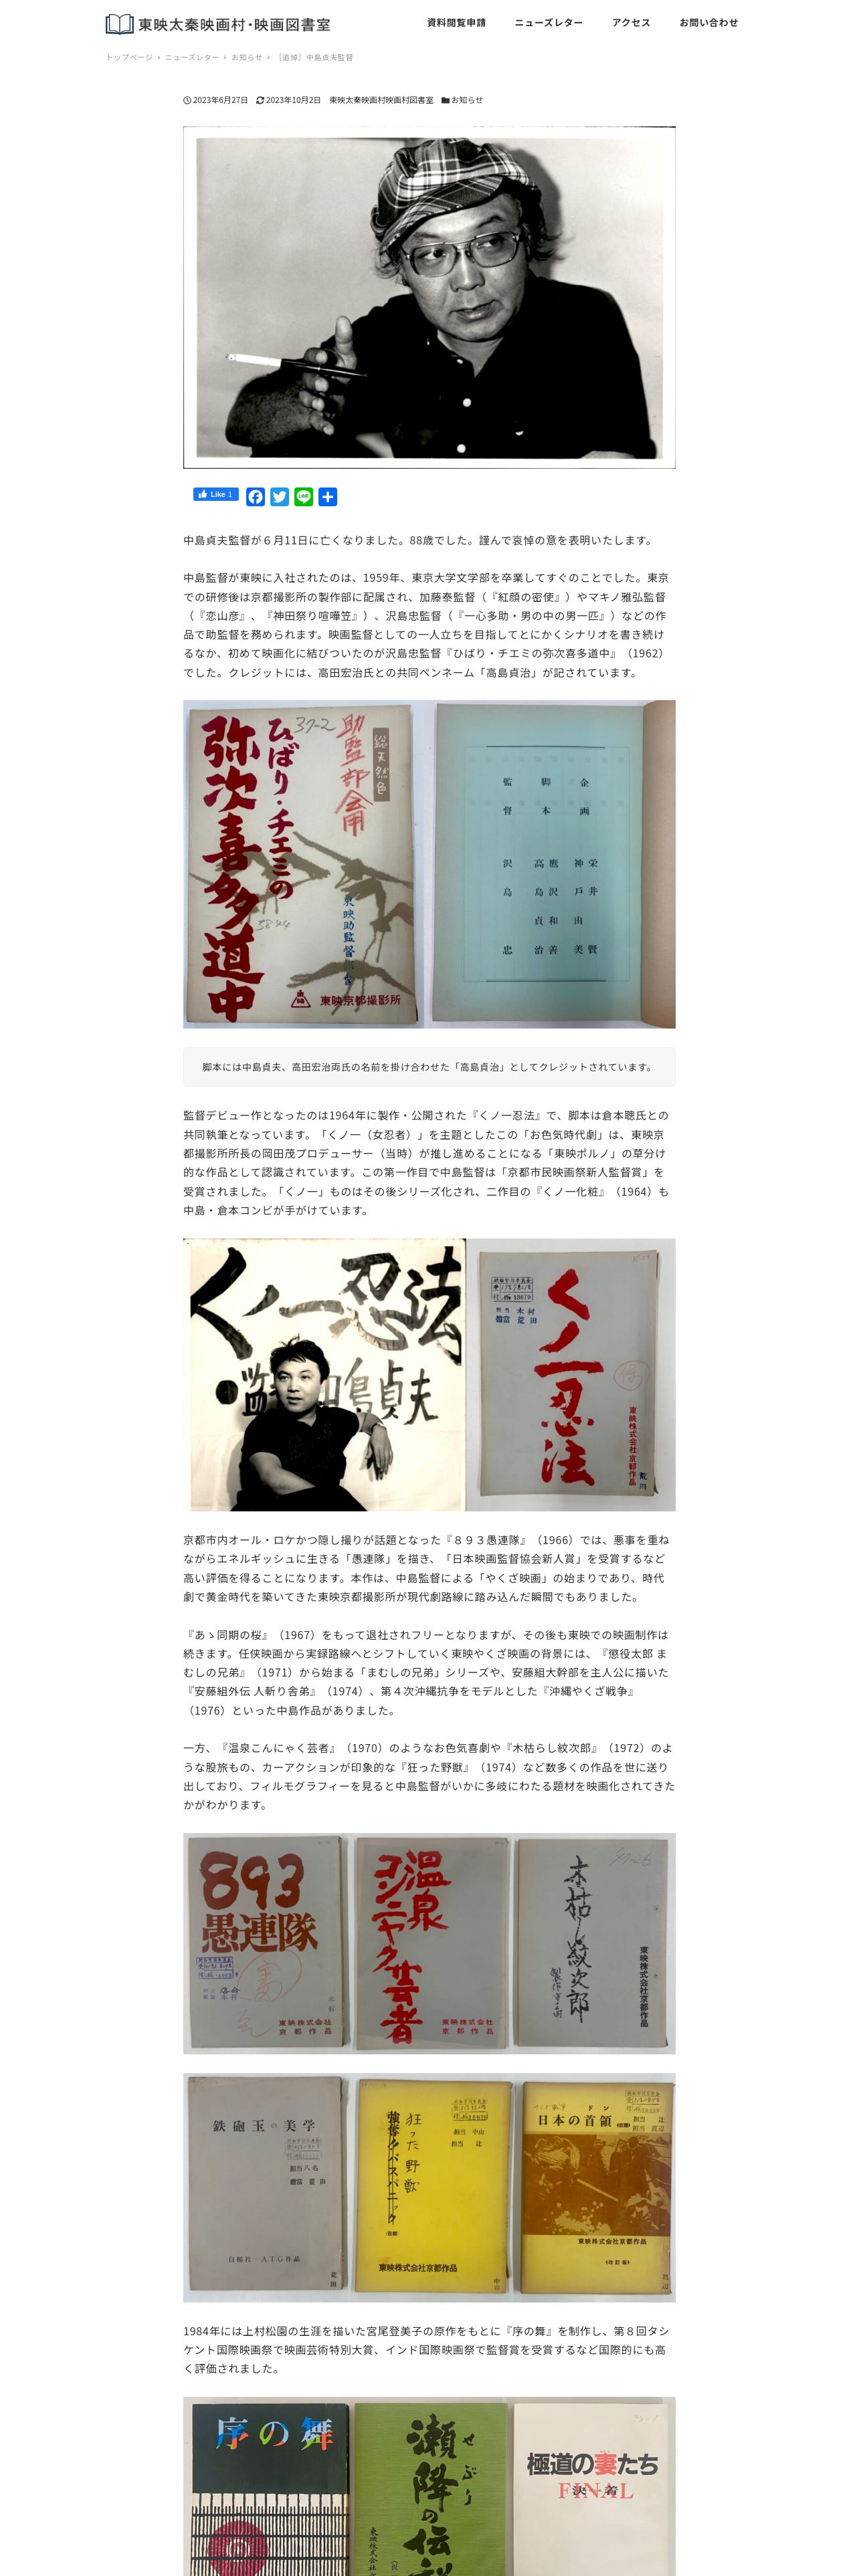 東映太秦映画村･映画図書室
資料閲覧申請 ニューズレター アクセス お問い合わせ
トップページ › ニューズレター › お知らせ › ［追悼］中島貞夫監督
2023年6月27日 2023年10月2日 東映太秦映画村映画村図書室 お知らせ
Like 1
中島貞夫監督が６月11日に亡くなりました。88歳でした。謹んで哀悼の意を表明いたします。
中島監督が東映に入社されたのは、1959年、東京大学文学部を卒業してすぐのことでした。東京
での研修後は京都撮影所の製作部に配属され、加藤泰監督（『紅顔の密使』）やマキノ雅弘監督
（『恋山彦』、『神田祭り喧嘩笠』）、沢島忠監督（『一心多助・男の中の男一匹』）などの作
品で助監督を務められます。映画監督としての一人立ちを目指してとにかくシナリオを書き続け
るなか、初めて映画化に結びついたのが沢島忠監督『ひばり・チエミの弥次喜多道中』（1962）
でした。クレジットには、高田宏治氏との共同ペンネーム「高島貞治」が記されています。
総天然色
ひばり・チエミの
弥次喜多道中
37-2
東映京都撮影所
企画 神戸由美
栄井賢
脚本 鷹沢和善
高島貞治
監督 沢島忠
脚本には中島貞夫、高田宏治両氏の名前を掛け合わせた「高島貞治」としてクレジットされています。
監督デビュー作となったのは1964年に製作・公開された『くノ一忍法』で、脚本は倉本聰氏との
共同執筆となっています。「くノ一（女忍者）」を主題としたこの「お色気時代劇」は、東映京
都撮影所所長の岡田茂プロデューサー（当時）が推し進めることになる「東映ポルノ」の草分け
的な作品として認識されています。この第一作目で中島監督は「京都市民映画祭新人監督賞」を
受賞されました。「くノ一」ものはその後シリーズ化され、二作目の『くノ一化粧』（1964）も
中島・倉本コンビが手がけています。
くノ一忍法
監 中島貞夫
くノ一忍法
担当 木村
荒田
東映株式会社京都作品
荒田
京都市内オール・ロケかつ隠し撮りが話題となった『８９３愚連隊』（1966）では、悪事を重ね
ながらエネルギッシュに生きる「愚連隊」を描き、「日本映画監督協会新人賞」を受賞するなど
高い評価を得ることになります。本作は、中島監督による「やくざ映画」の始まりであり、時代
劇で黄金時代を築いてきた東映京都撮影所が現代劇路線に踏み込んだ瞬間でもありました。
『あゝ同期の桜』（1967）をもって退社されフリーとなりますが、その後も東映での映画制作は
続きます。任侠映画から実録路線へとシフトしていく東映やくざ映画の背景には、『懲役太郎 ま
むしの兄弟』（1971）から始まる「まむしの兄弟」シリーズや、安藤組大幹部を主人公に描いた
『安藤組外伝 人斬り舎弟』（1974）、第４次沖縄抗争をモデルとした『沖縄やくざ戦争』
（1976）といった中島作品がありました。
一方、『温泉こんにゃく芸者』（1970）のようなお色気喜劇や『木枯らし紋次郎』（1972）のよ
うな股旅もの、カーアクションが印象的な『狂った野獣』（1974）など数多くの作品を世に送り
出しており、フィルモグラフィーを見ると中島監督がいかに多岐にわたる題材を映画化されてきた
かがわかります。
893
愚連隊
東映株式会社
京都作品
温泉
コンニャク芸者
東映株式会社
京都作品
木枯し紋次郎
東映株式会社京都作品
鉄砲玉の美学
担当 八名
荒田
白楊社＝A.T.G作品
荒田
狂った野獣
担当 中山
担当 辻
東映株式会社京都作品
中山
ドン
日本の首領
担当 辻
担当 渡辺
東映株式会社京都作品
《改訂版》
渡辺
1984年には上村松園の生涯を描いた宮尾登美子の原作をもとに『序の舞』を制作し、第８回タシ
ケント国際映画祭で映画芸術特別大賞、インド国際映画祭で監督賞を受賞するなど国際的にも高
く評価されました。
序の舞
せぶり
瀬降の伝
極道の妻たち
FINAL
決着